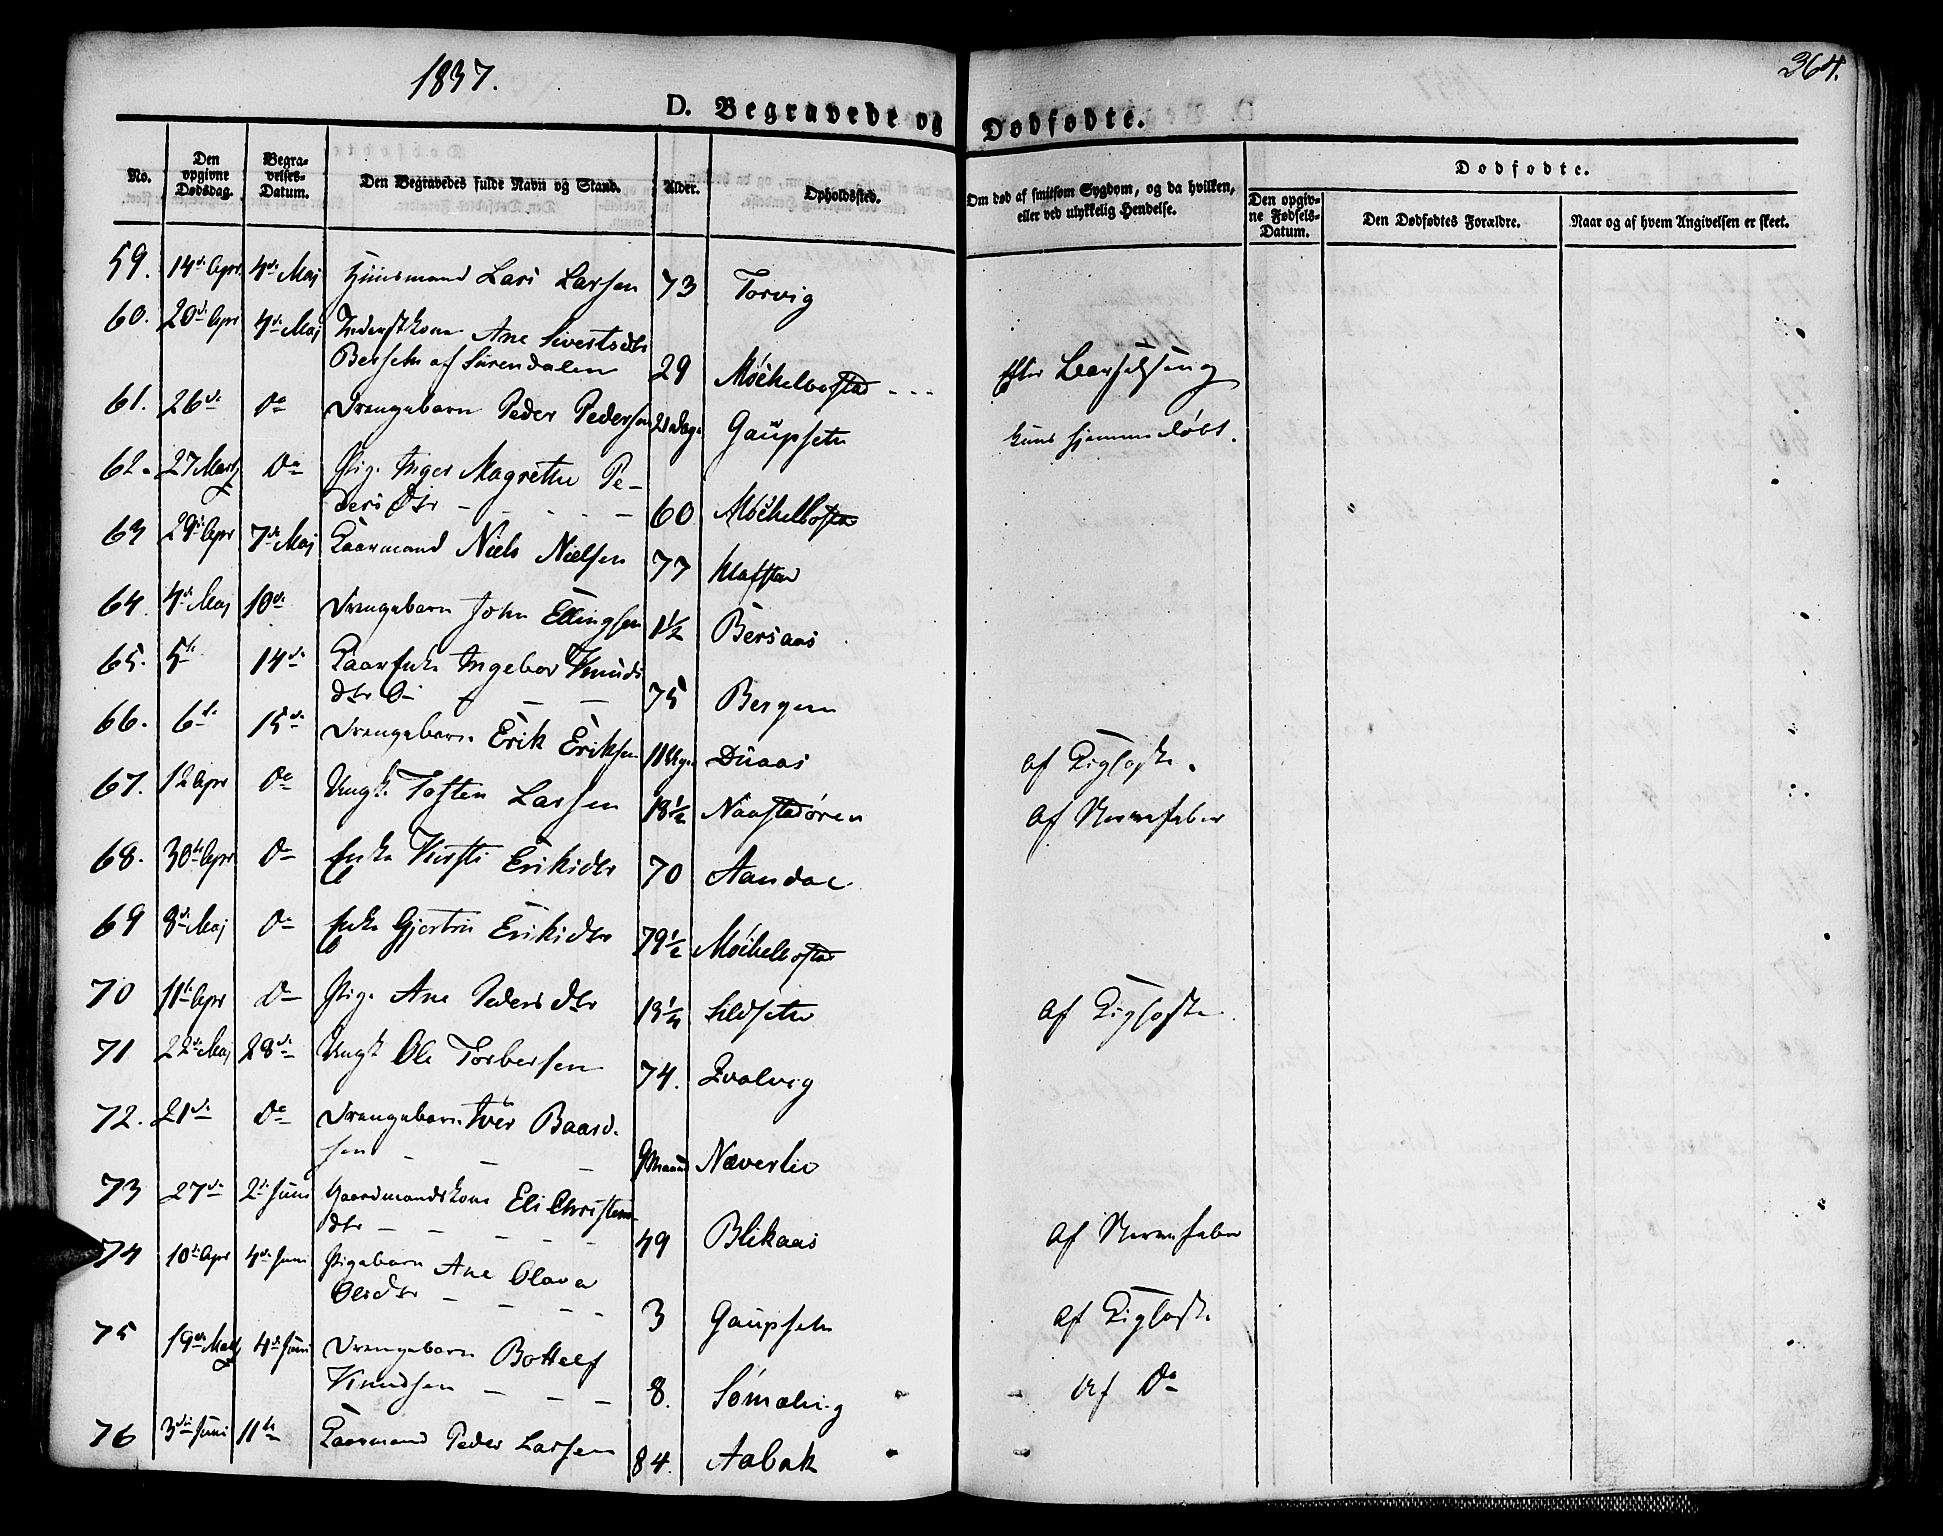 1837.
364.
D. Begravede og Dødfødte.
No. Den opgivne Dødsdag. Begravelses-Datum. Den Begravedes fulde Navn og Stand. Alder. Opholdssted. Om død af smitsom Sygdom, og da hvilken, eller ved ulykkelig Hendelse. Den opgivne Fødsels-Datum. Den Dødfødtes Forældre. Naar og af hvem Angivelsen er skeet.
Dødfødte.
59. 14de Apr 4de Maj Huusmand Lars Larsen 73 Torvig
60. 20de Apr 4de Maj Inderstkone Ane Sivertsdtr
Berseth af Surendalen 29 Møckelbostad - - - Efter Barselseng
61. 26de Do Drengebarn Peder Pedersen 21 Dage Gaupseth kuns hjemmedøbt.
62. 27 Marts Do Pige Inger Magrethe Pe-
ders Dtr - - - - 60 Møckelbostad
63 29de Apr 7de Maj Kaarmand Niels Nielsen 77
64. 4de Maj 10de Drengebarn John Ellingsen 1 1/2 Bersaas
65. 5te 14de Kaarenke Ingebor Knuds
dtr - - - 75 Bergem
66. 6te 15de Drengebarn Erik Eriksen 11 Uger Duaas af Kighoste.
67. 12 Apr Do Ungk. Tosten Larsen 18 1/2 Naastadøren af Nervefeber
68. 30te Apr Do Enke Kirsti Eriksdtr 70 Aandal
69 8de Maj Do Enke Gjertru Eriksdtr 79 1/2 Møckelbostad
70 11te Apr Do Pige Ane Pedersdtr 13 1/4 Sildseth af Kighoste.
71 22de Maj 28de Ungk Ole Torbersen 74. Qvalvig
72. 21de Do Drengebarn Iver Baard-
sen - - - 9 Maaned Næverlie
73 27de 2de Juni Gaardmandskone Eli Christens-
dtr - - - - - 49 Blikaas af Nervefeber
74 10de Apr 4de Juni Pigebarn Ane Olava
Olsdtr - - - - 3 Gaupseth af Kighoste
75 19de Maj 4de Juni Drengebarn Bottolf
Knudsen - - - - 8. Sømælvig af Do
76 3die Juni 11te Kaarmand Peder Larsen 84. Aabak